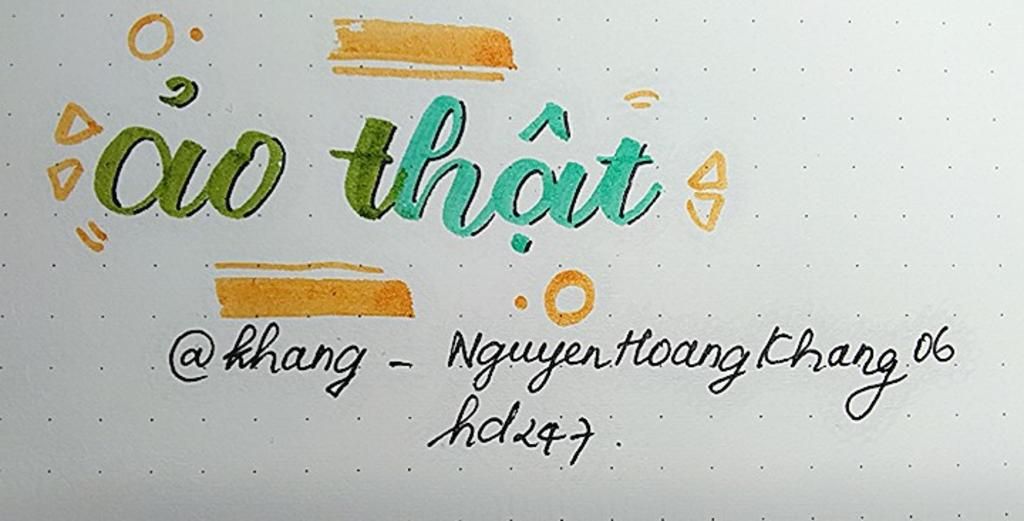 ảo thật
@khang - NguyenHoangKhang06
hd247.